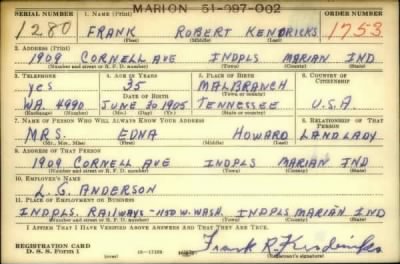 MARION 51-097-002
SERIAL NUMBER 1. NAME (Print) ORDER NUMBER
1280 FRANK ROBERT KENDRICKS 1753
(First) (Middle) (Last)
2. ADDRESS (Print)
1909 CORNELL AVE INDPLS MARIAN IND
(Number and street or R. F. D. number) (Town) (County) (State)
3. TELEPHONE 4. AGE IN YEARS 5. PLACE OF BIRTH 6. COUNTRY OF CITIZENSHIP
yes 35 MALBRANCH
DATE OF BIRTH (Town or county)
WA. 4990 JUNE 30 1905 TENNESSEE U.S.A.
(Exchange) (Number) (Mo.) (Day) (Yr.) (State or country)
7. NAME OF PERSON WHO WILL ALWAYS KNOW YOUR ADDRESS 8. RELATIONSHIP OF THAT PERSON
MRS. EDNA HOWARD LANDLADY
(Mr., Mrs., Miss) (First) (Middle) (Last)
9. ADDRESS OF THAT PERSON
1909 CORNELL AVE INDPLS MARIAN IND
(Number and street or R. F. D. number) (Town) (County) (State)
10. EMPLOYER'S NAME
L. G. ANDERSON
11. PLACE OF EMPLOYMENT OR BUSINESS
INDPLS. RAILWAYS - 1150 W. WASH. INDPLS MARIAN IND
(Number and street or R. F. D. number) (Town) (County) (State)
I AFFIRM THAT I HAVE VERIFIED ABOVE ANSWERS AND THAT THEY ARE TRUE.
REGISTRATION CARD
D. S. S. Form 1 Frank R. Kendricks
(Registrant's signature)